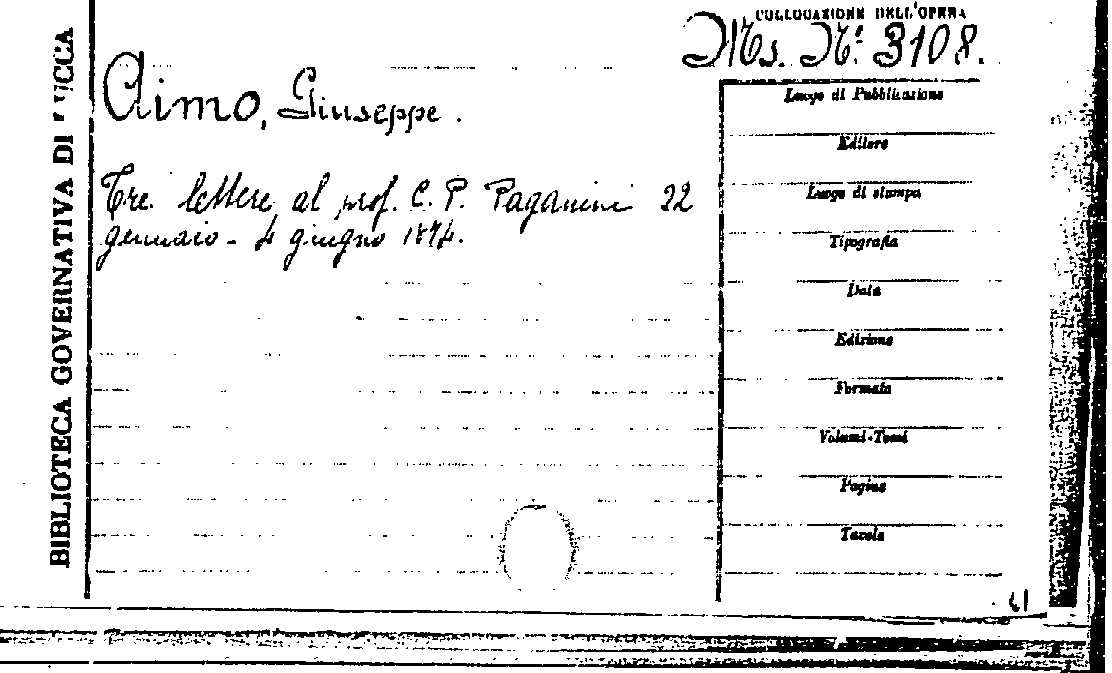 COLLOCAZIONE DELL'OPERA
Ms. N.° 3108.
Aimo, Giuseppe.
Tre lettere al prof. C. P. Paganini 22
gennaio - 4 giugno 1874.
BIBLIOTECA GOVERNATIVA DI LUCCA
Luogo di Pubblicazione
Editore
Luogo di stampa
Tipografia
Data
Edizione
Formato
Volumi-Tomi
Pagine
Tavole